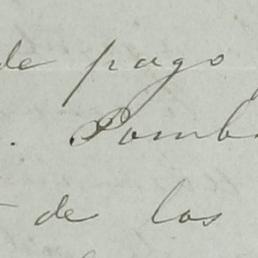 de pago
. Pomb
de los